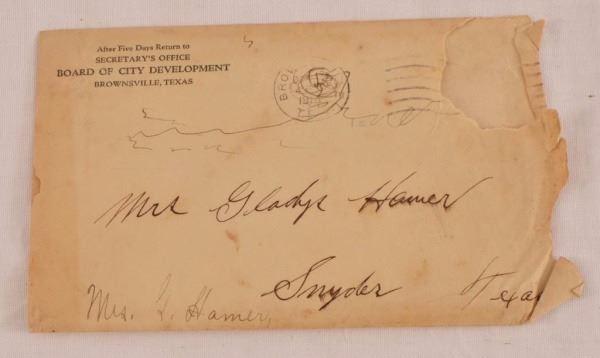 After Five Days Return to
SECRETARY'S OFFICE
BOARD OF CITY DEVELOPMENT
BROWNSVILLE, TEXAS
BRO
Mrs Gladys Hamer
Snyder Texas
Mrs. G. Hamer,